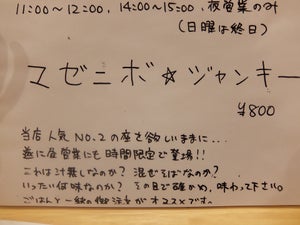 11:00〜12:00, 14:00〜15:00, 夜営業のみ
(日曜は終日)
マゼニボ☆ジャンキー
¥800
当店人気NO.2の座を欲しいままに...
遂に昼営業にも時間限定で登場!!
これは汁無しなのか? 混ぜそばなのか?
いったい何味なのか? その目で確かめ, 味わって下さい。
ごはんと一緒の御注文がオススメです。